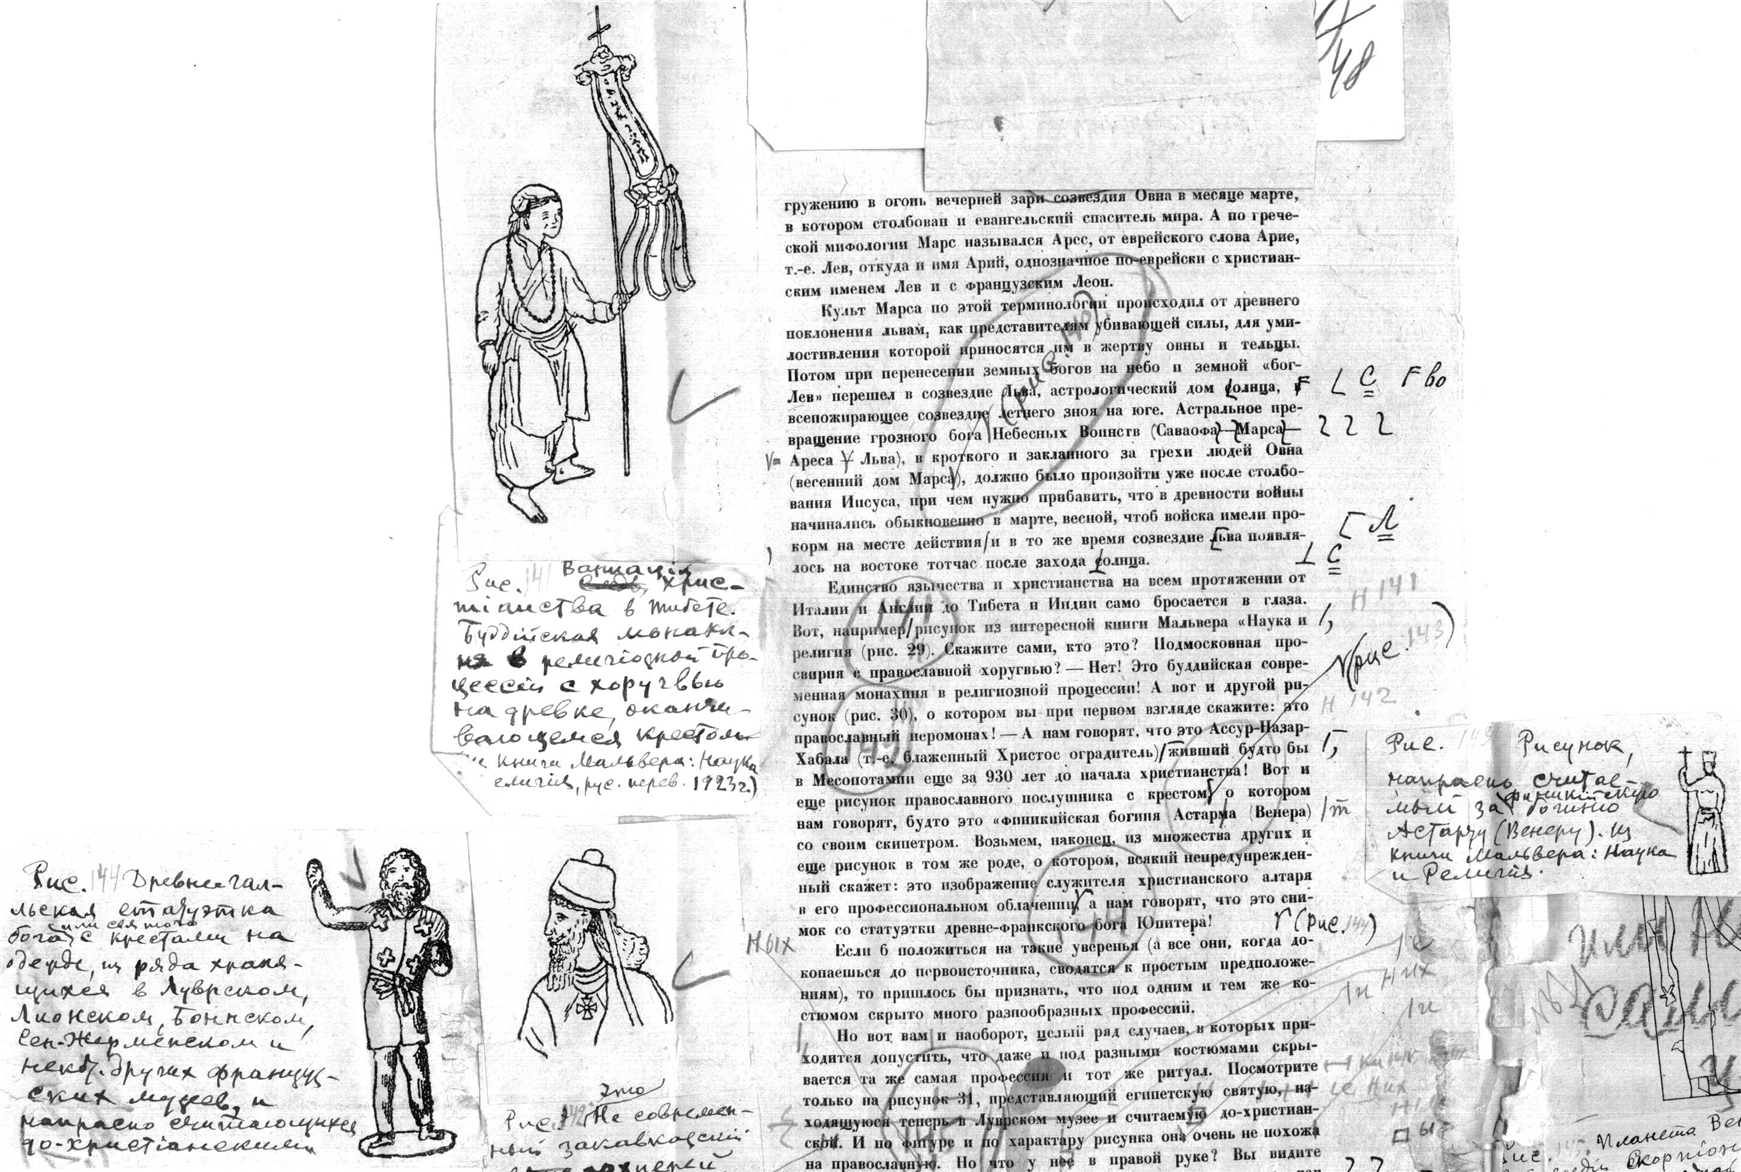 48
гружению в огонь вечерней зари созвездия Овна в месяце марте,
в котором столбован и евангельский спаситель мира. А по грече-
ской мифологии Марс назывался Арес, от еврейского слова Арие,
т.-е. Лев, откуда и имя Арий, однозначное по-еврейски с христиан-
ским именем Лев и с французским Леон.
Культ Марса по этой терминологии происходил от древнего
поклонения львам, как представителям убивающей силы, для уми-
лостивления которой приносятся им в жертву овны и тельцы.
Потом при перенесении земных богов на небо и земной «бог-
Лев» перешел в созвездие Льва, астрологический дом солнца, и
всепожирающее созвездие летнего зноя на юге. Астральное пре-
вращение грозного бога Небесных Воинств (Саваофа—Марса—
Ареса — Льва), в кроткого и закланного за грехи людей Овна
(весенний дом Марса), должно было произойти уже после столбо-
вания Иисуса, при чем нужно прибавить, что в древности войны
начинались обыкновенно в марте, весной, чтоб войска имели про-
корм на месте действия и в то же время созвездие Льва появля-
лось на востоке тотчас после захода солнца.
Единство язычества и христианства на всем протяжении от
Италии и Англии до Тибета и Индии само бросается в глаза.
Вот, например рисунок из интересной книги Мальвера «Наука и
религия (рис. 29). Скажите сами, кто это? Подмосковная про-
свирня с православной хоругвью? — Нет! Это буддийская совре-
менная монахиня в религиозной процессии! А вот и другой ри-
сунок (рис. 30), о котором вы при первом взгляде скажите: это
православный иеромонах! — А нам говорят, что это Ассур-Назар-
Хабала (т.-е. блаженный Христос оградитель) живший будто бы
в Месопотамии еще за 930 лет до начала христианства! Вот и
еще рисунок православного послушника с крестом о котором
нам говорят, будто это «финикийская богиня Астарта (Венера)
со своим скипетром. Возьмем, наконец, из множества других и
еще рисунок в том же роде, о котором, всякий непредупрежден-
ный скажет: это изображение служителя христианского алтаря
в его профессиональном облачении а нам говорят, что это сни-
мок со статуэтки древне-франкского бога Юпитера!
Если б положиться на такие уверенья (а все они, когда до-
копаешься до первоисточника, сводятся к простым предположе-
ниям), то пришлось бы признать, что под одним и тем же ко-
стюмом скрыто много разнообразных профессий.
Но вот вам и наоборот, целый ряд случаев, в которых при-
ходится допустить, что даже и под разными костюмами скры-
вается та же самая профессия и тот же ритуал. Посмотрите
только на рисунок 31, представляющий египетскую святую, на-
ходящуюся теперь в Луврском музее и считаемую до-христиан-
ской. И по фигуре и по характеру рисунка она очень не похожа
на православную. Но что у нее в правой руке? Вы видите
(рис. 140)
141
142
С
во
Л
С
Н 141
(рис. 143)
Н 142
(рис. 144)
ных
них
Рис. 141 Вариация хрис-
тіанства в Тибете.
Буддійская монахи-
ня в религіозной про-
цессіи с хоругвью
на древке, оканчи-
вающемся крестом
книги Мальвера: Наука
религія, рус. перев. 1923 г.)
Рис. 144 Древне-гал-
льская статуэтка
бога или святого с крестами на
одежде, из ряда храня-
щихся в Луврском,
Лионском, Боннском,
Сен-Жерменском и
некот. других француз-
ских музеев и
напрасно считающихся
до-христіанскими
Рис. 142 Это не современ-
ный закавказский
Рис. 143 Рисунок,
напрасно считае-
мый за финикійскую богиню
Астарту (Венеру). Из
книги Мальвера: Наука
и Религія.
или
сам
Планета